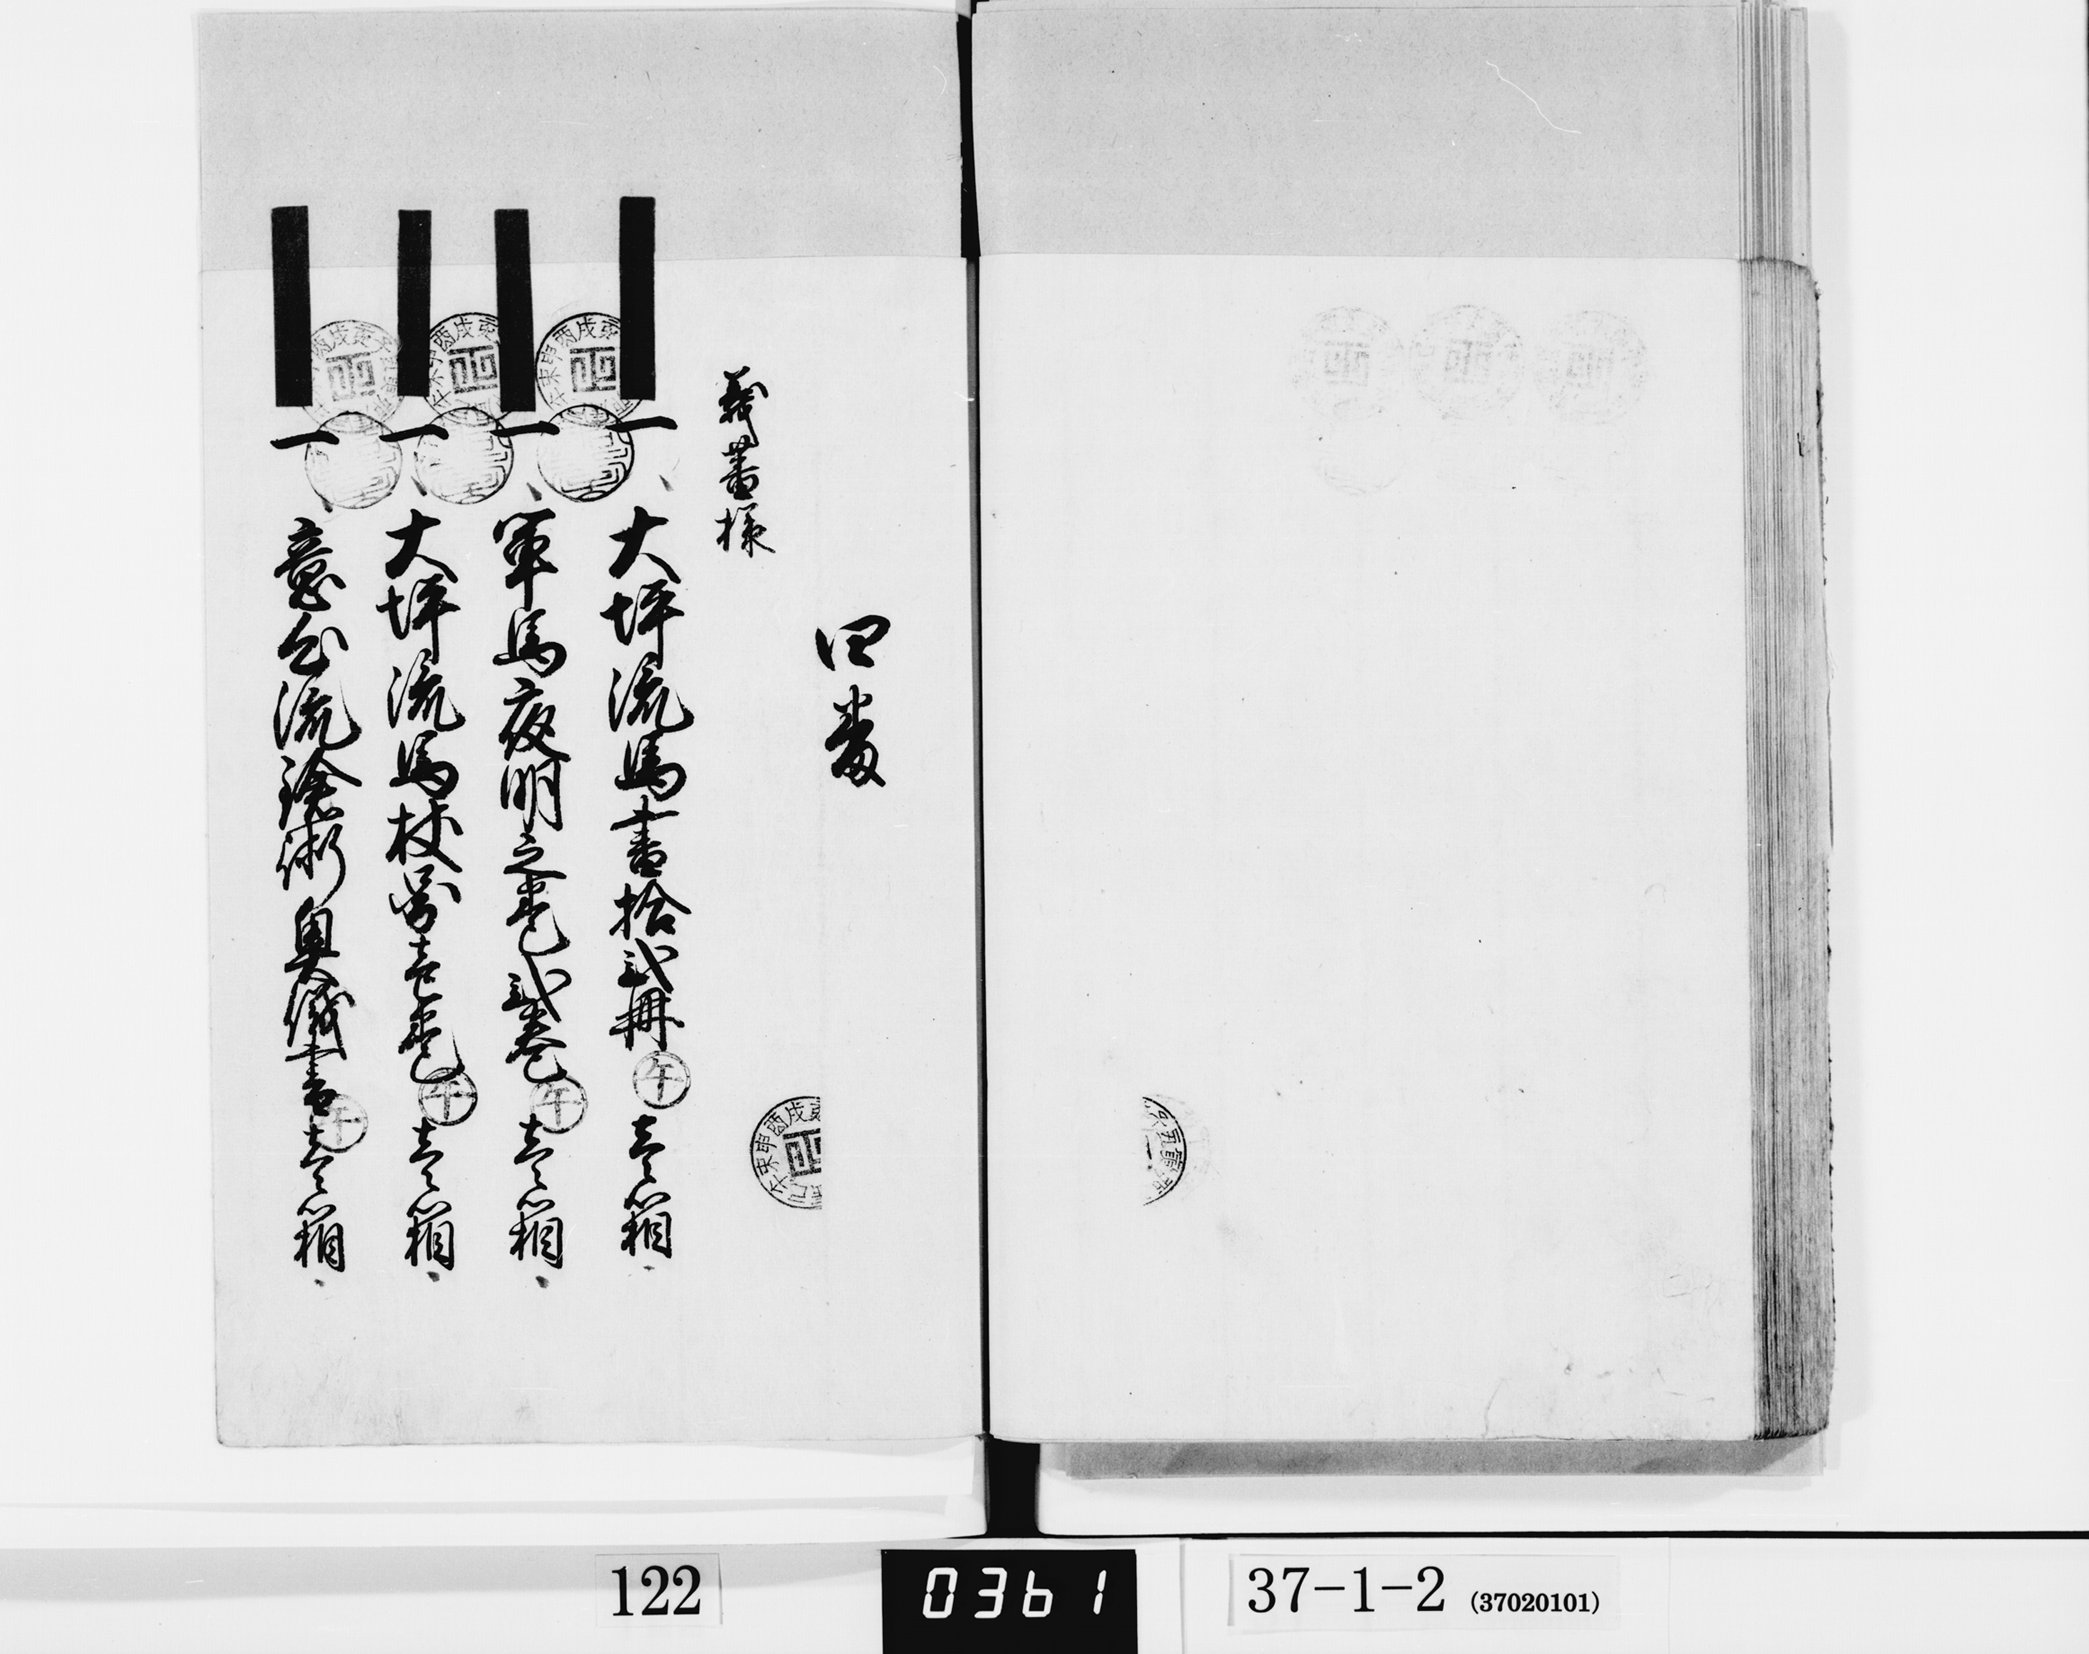 四番
義蕃様
一 大坪流馬書拾弐冊 午 壱箱
一 軍馬夜明之巻弐巻 午 壱箱
一 大坪流馬杖 壱巻 午 壱箱
一 意白流鎗術奥儀書 午 壱箱
122
0361
37-1-2 (37020101)